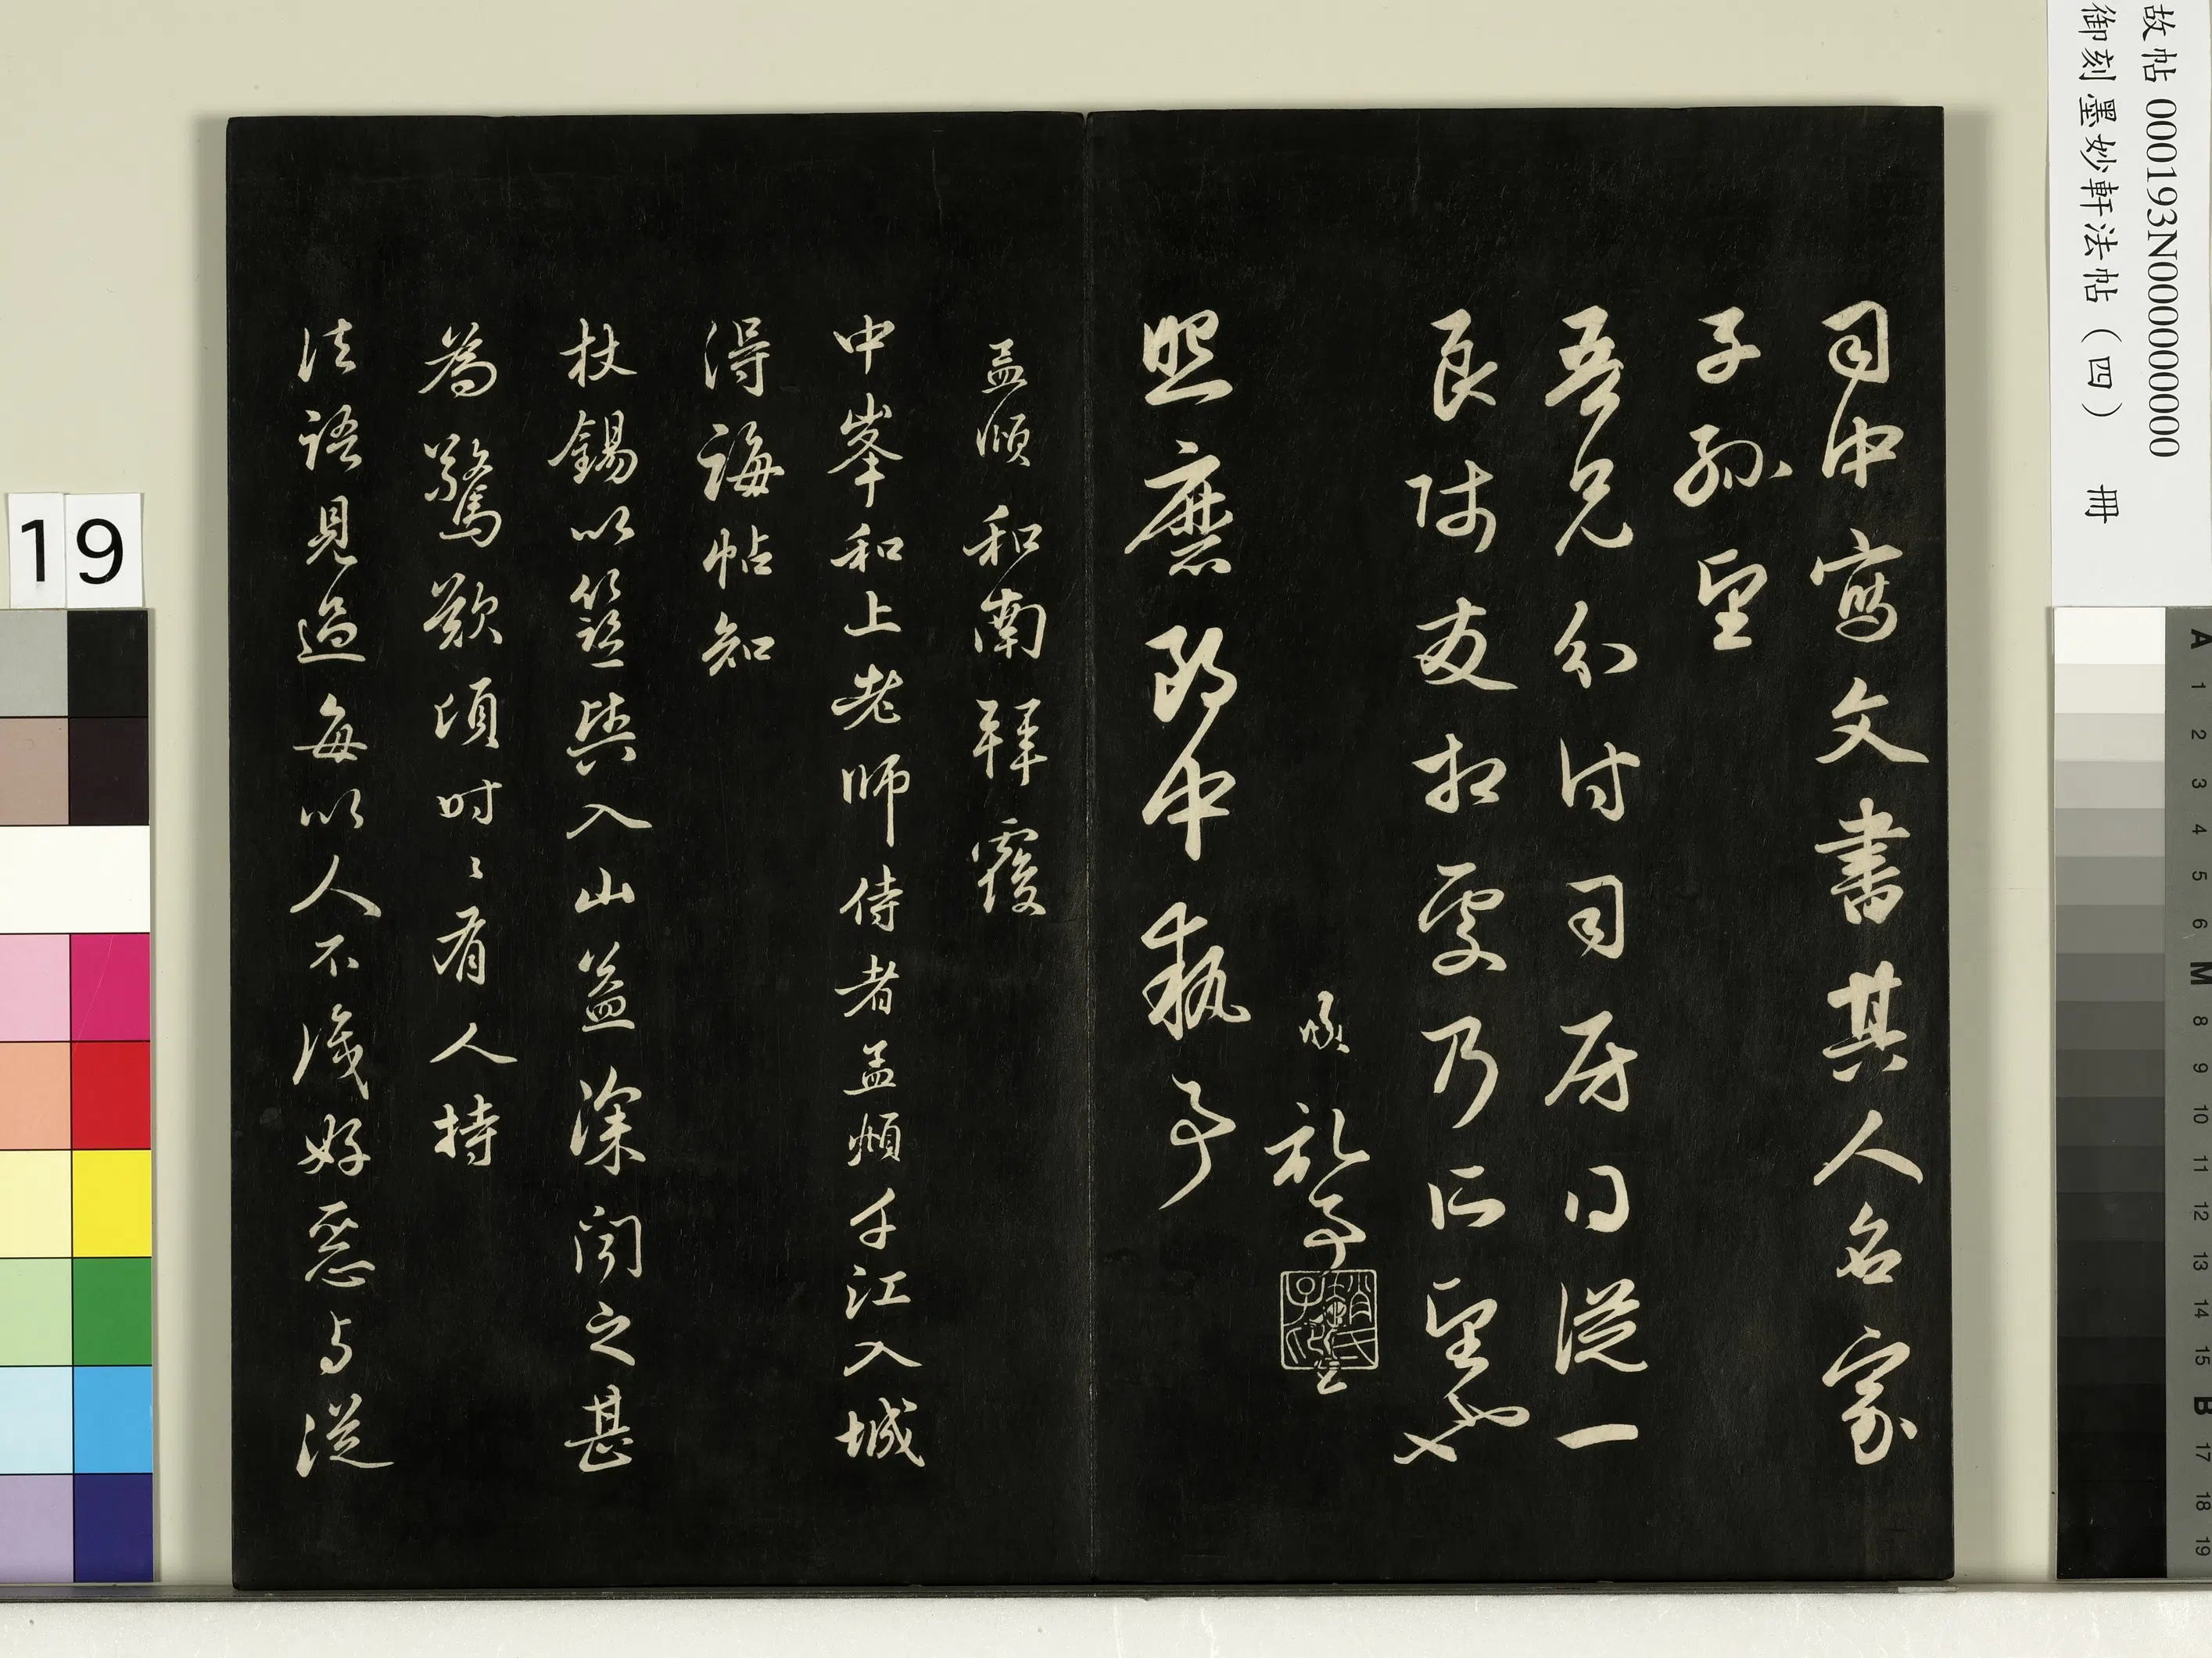 故帖 000193N000000000
御刻墨妙軒法帖（四） 冊
司中寫文書其人名家
子孫望
吾兄分付司房日後一
良時友相處乃所望也
頫 致
照磨郎中執事
孟頫和南拜覆
中峯和上老師侍者孟頫午江入城
得誨帖知
杖錫以籃輿入山益深聞之甚
為驚歎頃時〻有人持
法語見過每以人不識好惡与從
19
A 1 2 3 4 5 6 M 8 9 10 11 12 13 14 15 B 17 18 19